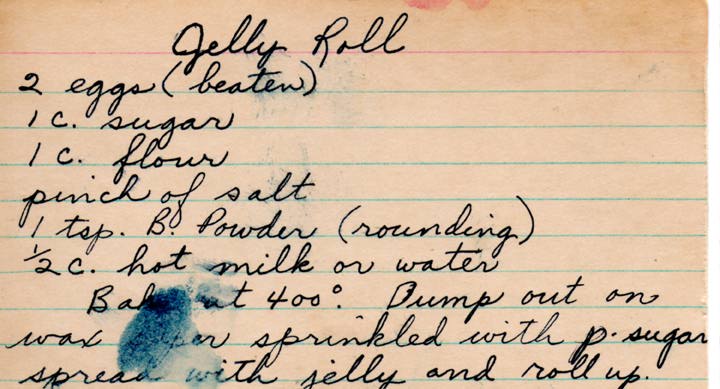 Jelly Roll
2 eggs (beaten)
1 c. sugar
1 c. flour
pinch of salt
1 tsp. B. Powder (rounding)
½ c. hot milk or water
Bake at 400°. Dump out on
wax paper sprinkled with p. sugar
spread with jelly and roll up.